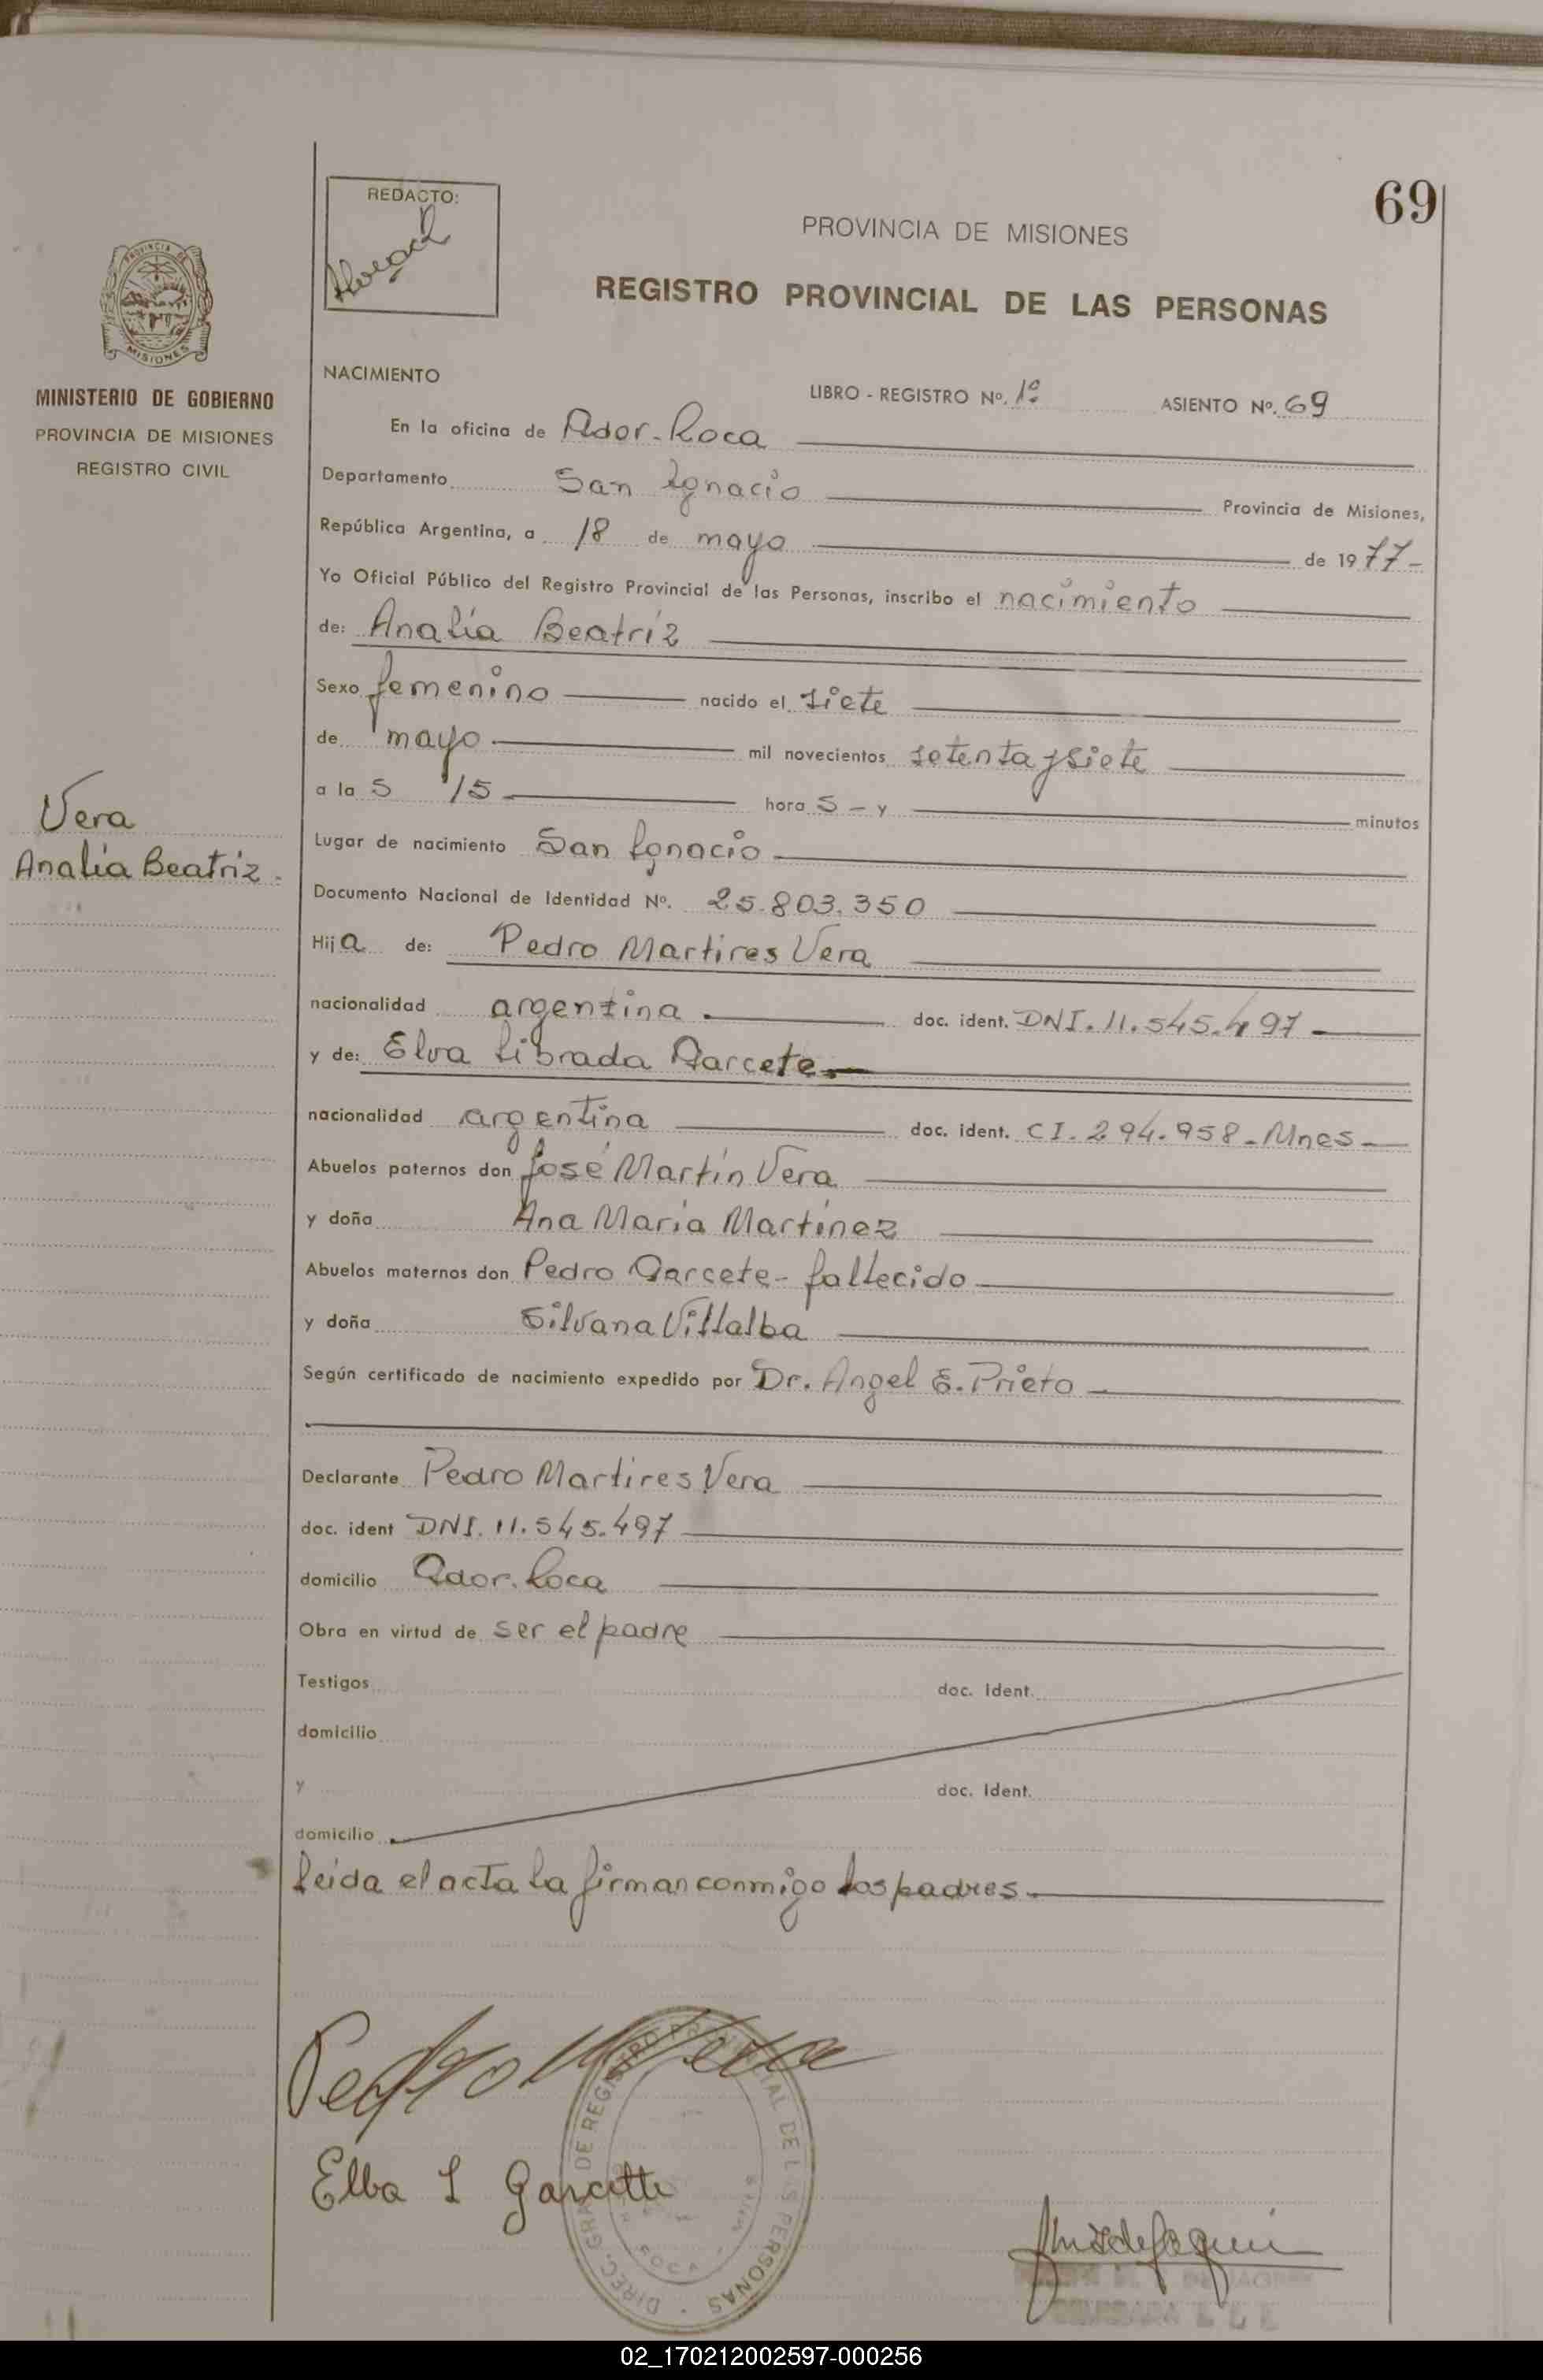 69
REDACTO:
PROVINCIA DE MISIONES
REGISTRO PROVINCIAL DE LAS PERSONAS
PROVINCIA DE
MISIONES
MINISTERIO DE GOBIERNO
PROVINCIA DE MISIONES
REGISTRO CIVIL
NACIMIENTO
LIBRO - REGISTRO Nº. 1º ASIENTO Nº. 69
En la oficina de Ador. Roca
Departamento San Ignacio Provincia de Misiones,
República Argentina, a 18 de mayo de 1977-
Yo Oficial Público del Registro Provincial de las Personas, inscribo el nacimiento
de: Analía Beatriz
Sexo femenino nacido el siete
de mayo mil novecientos setenta y siete
a las 15 horas - y minutos
Vera
Analía Beatriz -
Lugar de nacimiento San Ignacio
Documento Nacional de Identidad Nº. 25.803.350
Hija de: Pedro Martires Vera
nacionalidad argentina doc. ident. DNI. 11.545.497
y de: Elva Librada Garcete
nacionalidad argentina doc. ident. CI. 294.958 - Mnes -
Abuelos paternos don José Martín Vera
y doña Ana María Martínez
Abuelos maternos don Pedro Garcete - fallecido
y doña Silvana Villalba
Según certificado de nacimiento expedido por Dr. Angel E. Prieto
Declarante Pedro Martires Vera
doc. ident DNI. 11.545.497
domicilio Ador. Roca
Obra en virtud de ser el padre
Testigos doc. ident.
domicilio
y doc. ident.
domicilio
Leida el acta la firman conmigo los padres.
Pedro M Vera
DIREC. GRAL. DE REGISTRO PROVINCIAL DE LAS PERSONAS
ROCA
Elba L Garcette
02_170212002597-000256